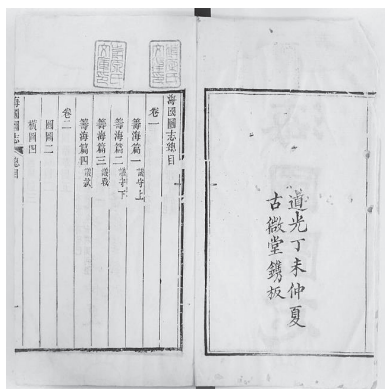 道光丁未仲夏
古微堂鐫板
海國圖志總目
卷一
籌海篇一 議守上
籌海篇二 議守下
籌海篇三 議戰
籌海篇四 議款
卷二
圓圖二
橫圖四
海國圖志 總目